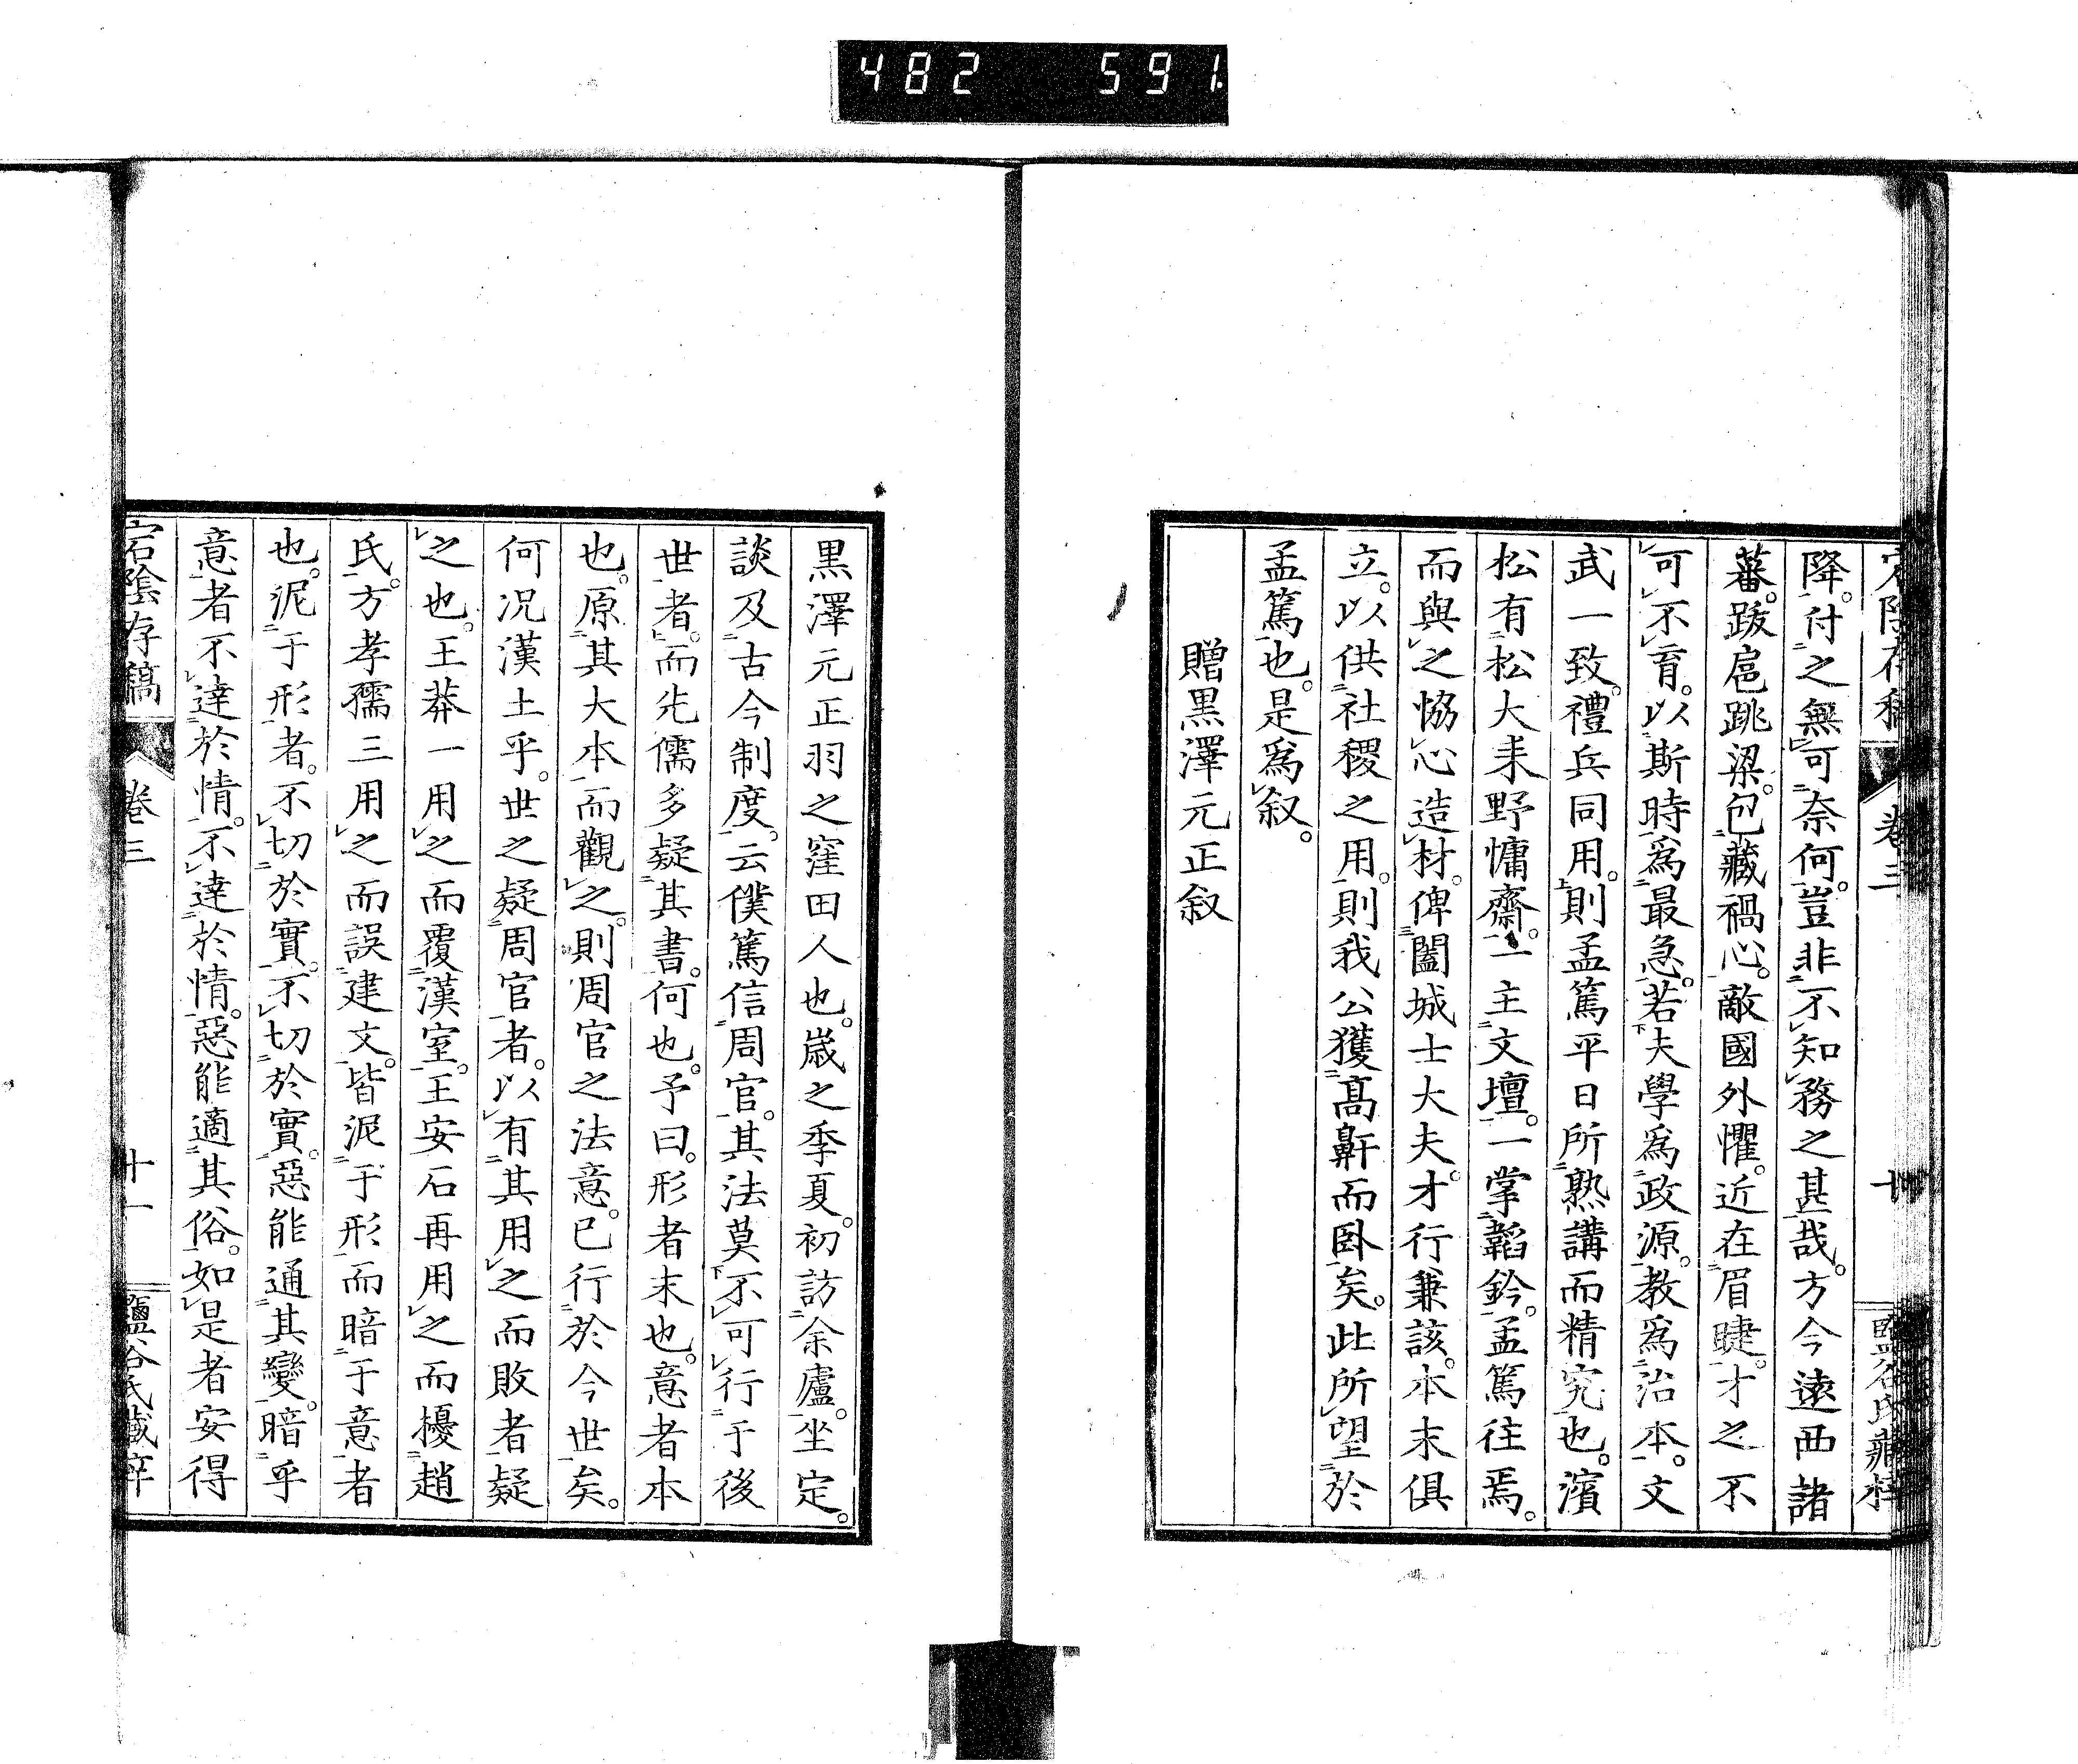 482 591
宕陰存稿 卷三 十 鹽谷氏藏梓
降。付之無可奈何。豈非不知務之甚哉。方今遠西諸
蕃。跋扈跳梁。包藏禍心。敵國外懼。近在眉睫。才之不
可不育。以斯時爲最急。若夫學爲政源。教爲治本。文
武一致。禮兵同用。則孟篤平日所熟講而精究也。濱
松有松大耒野慵齋。一主文壇。一掌韜鈐。孟篤往焉。
而與之恊心造材。俾闔城士大夫。才行兼該。本末俱
立。以供社稷之用。則我公獲高鼾而臥矣。此所望於
孟篤也。是爲叙。
贈黑澤元正叙
黑澤元正羽之窪田人也。歲之季夏。初訪余廬。坐定。
談及古今制度。云僕篤信周官。其法莫不可行于後
世者。而先儒多疑其書。何也。予曰。形者末也。意者本
也。原其大本而觀之。則周官之法意。已行於今世矣。
何況漢土乎。世之疑周官者。以有其用之而敗者疑
之也。王莽一用之而覆漢室。王安石再用之而擾趙
氏。方孝孺三用之而誤建文。皆泥于形而暗于意者
也。泥于形者。不切於實。不切於實。惡能通其變。暗乎
意者不達於情。不達於情。惡能適其俗。如是者安得
宕陰存稿 卷三 十一 鹽谷氏藏梓